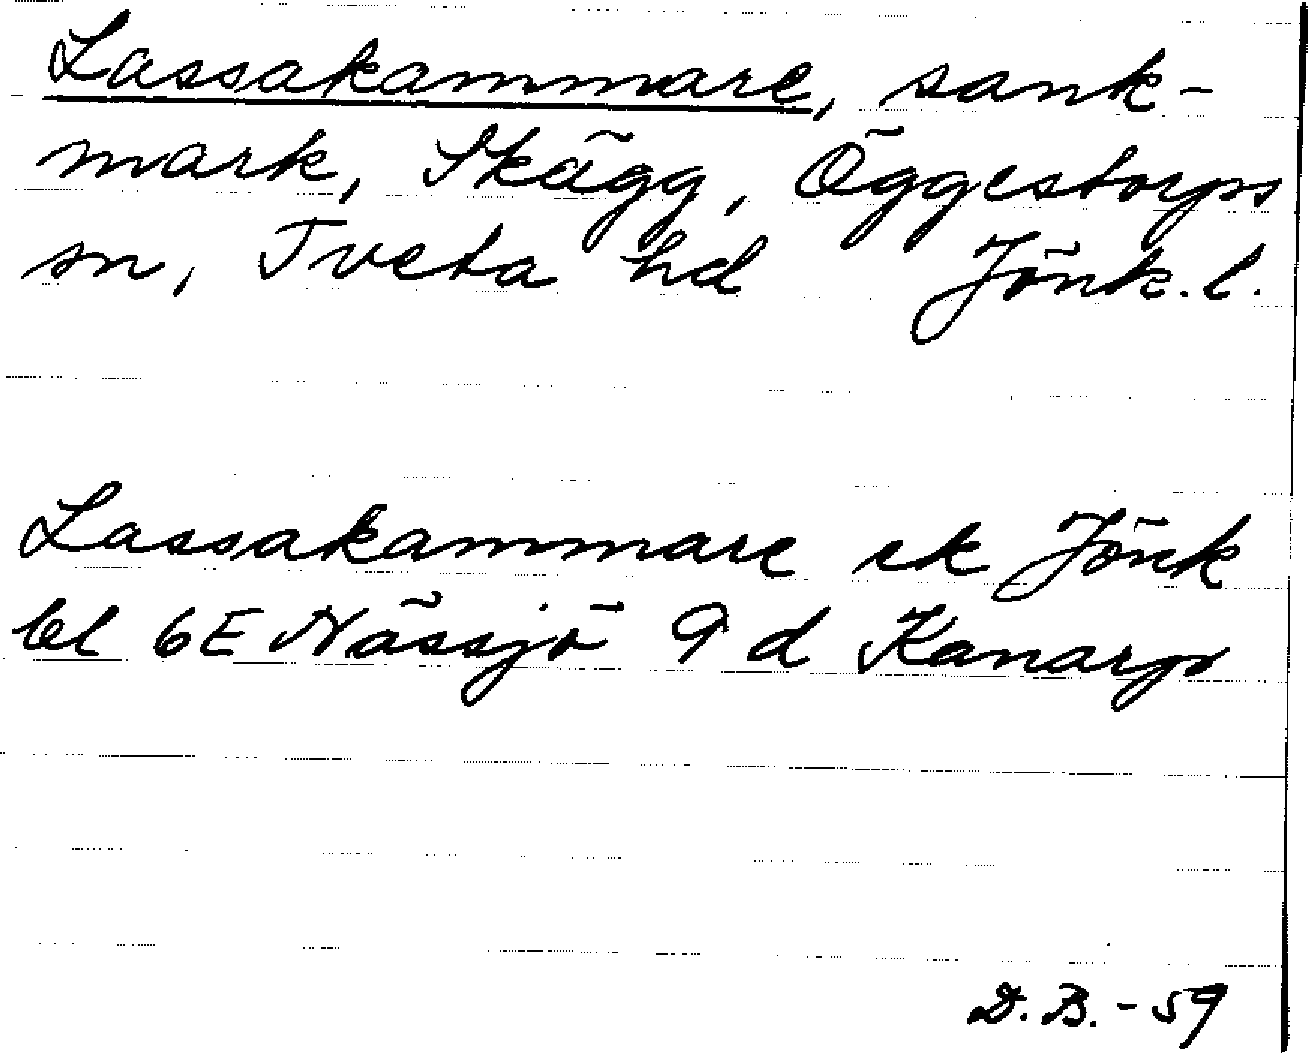 Lassakammare, sank-
mark, Skägg, Öggestorps
sn, Tveta hd Jönk. l.
Lassakammare ek Jönk
bl 6E Nässjö 9 d Kanarp
D. B. - 59